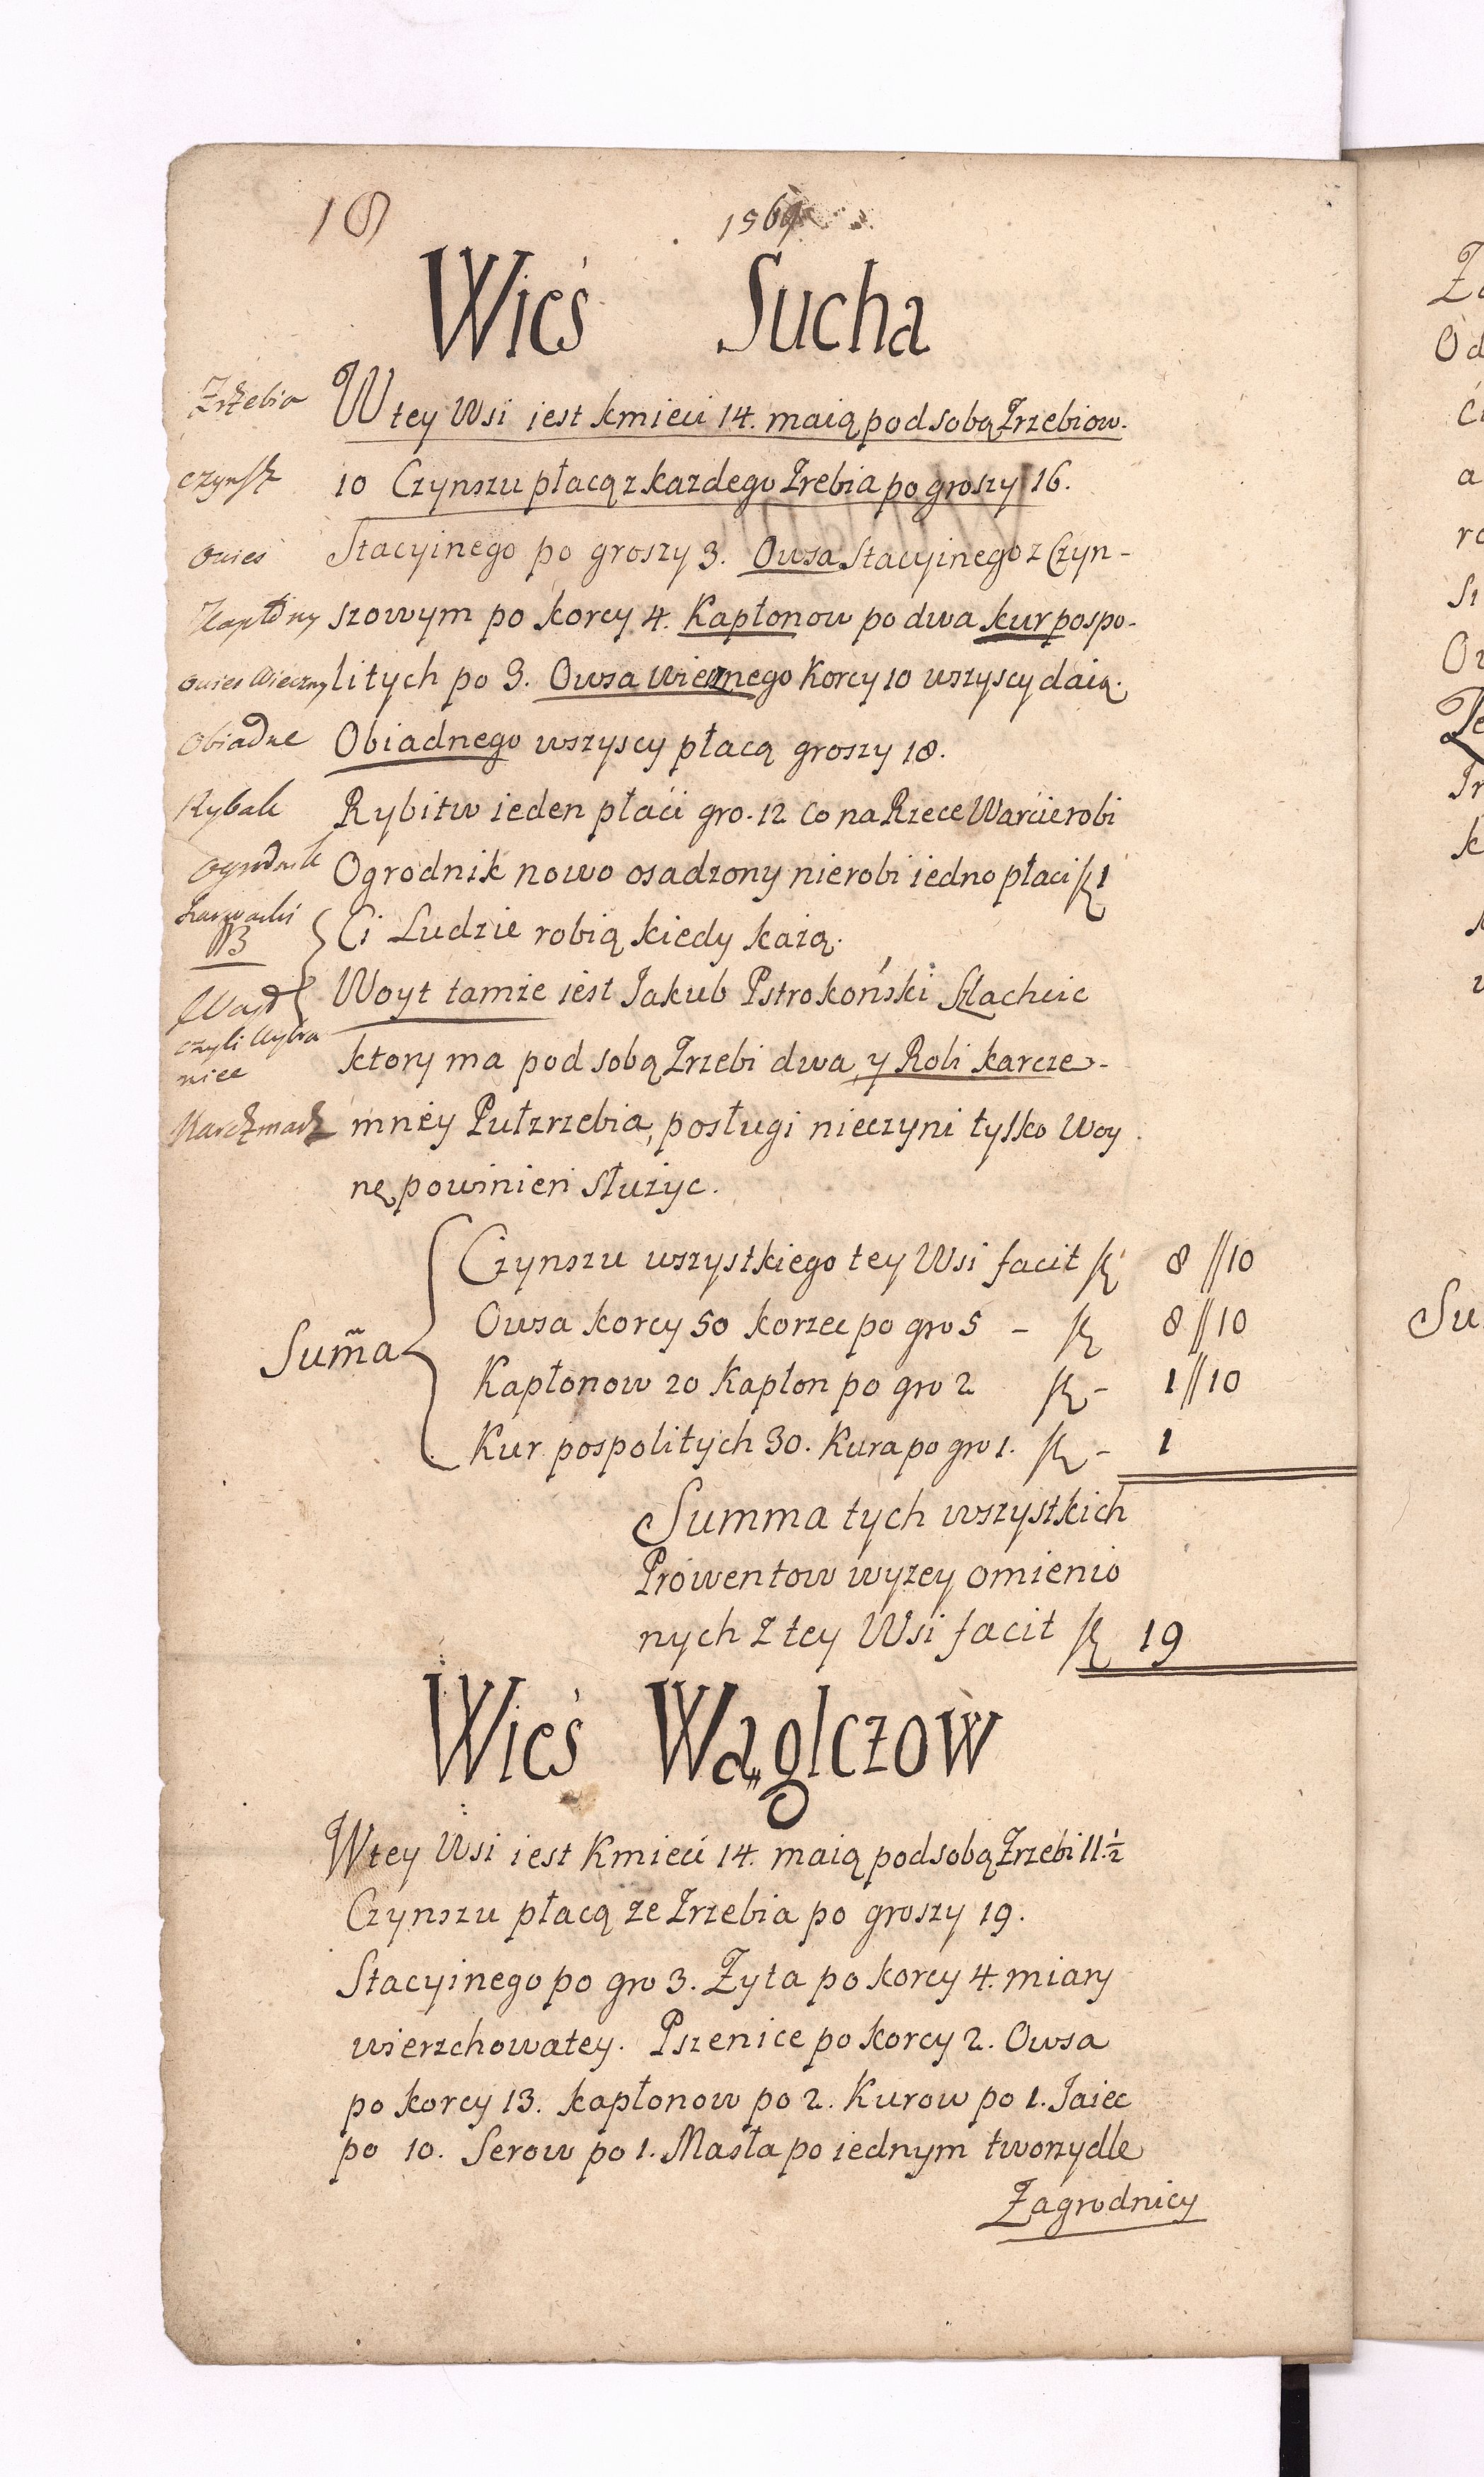 18
1569
Wieś Sucha
Zrzebia
W tey Wsi iest kmieci 14. maią pod sobą Zrzebiow.
czynsz
10 Czynszu płacą z kazdego Zrebia po groszy 16.
owies
Stacyinego po groszy 3. Owsa Stacyinego z Czyn-
Kapłony
szowym po korcy 4. Kapłonow po dwa kur pospo-
owies Wieczny
litych po 3. Owsa wiecznego Korcy 10 wszyscy daią.
Obiadne
Obiadnego wszyscy płacą groszy 18.
Rybak
Rybitw ieden płaći gro. 12 co na Rzece Warcie robi
ogrodnik
Ogrodnik nowo osadzony nierobi iedno płaci ƒl 1
Ci Ludzie robią kiedy każą.
Woyt
Woyt tamże iest Jakub Pstrokoński Szlachcic
czyli Wybra
niec
ktory ma pod sobą Zrzebi dwa, y Roli karcze-
Karczmarz
mnéy Pułzrzebia, posługi nieczyni tylko Woy
nę powinien Służyc.
Sum̃a
Czynszu wszystkiego tey Wsi facit ƒl 8 // 10
Owsa korcy 50 korzec po gro 5 - ƒl 8 // 10
Kapłonow 20 Kapłon po gro 2 ƒl - 1 // 10
Kur pospolitych 30. Kura po gro 1. ƒl - 1
Summa tych wszystkich
Prowentow wyzey omienio
nych z tey Wsi facit ƒl 19
Wieś Wąglczow
W tey Wsi iest Kmieci 14. maią pod sobą Zrzebi 11½
Czynszu płacą ze Zrzebia po groszy 19.
Stacyinego po gro 3. Zyta po korcy 4. miary
wierzchowatey. Pszenice po korcy 2. Owsa
po korcy 13. kapłonow po 2. Kurow po 1. Jaiec
po 10. Serow po 1. Masła po iednym tworzydle
Zagrodnicy